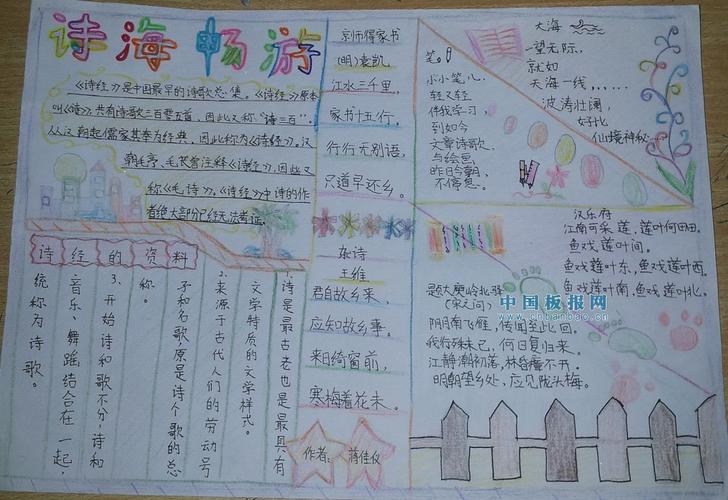 诗海畅游
《诗经》是中国最早的诗歌总集。《诗经》原本
叫《诗》，共有诗歌三百零五首，因此又称“诗三百”。
从汉朝起儒家其奉为经典，因此称为《诗经》，汉
朝毛亨、毛苌曾注释《诗经》，因此又
称《毛诗》，《诗经》中诗的作
者绝大部分已经无法考证。
诗经的资料
1.诗是最古老也是最具有
文学特质的文学样式。
2.来源于古代人们的劳动号
子和名歌，原是诗个歌的总
称。
3、开始诗和歌不分，诗和
音乐、舞蹈结合在一起，
统称为诗歌。
京师得家书
（明）袁凯
江水三千里，
家书十五行。
行行无别语，
只道早还乡。
杂诗
王维
君自故乡来，
应知故乡事。
来日绮窗前，
寒梅着花未。
作者：
蒋佳仪
笔。
小小笔儿，
轻又轻
伴我学习，
到如今
文章诗歌，
与绘画
昨日今朝，
不停息。
大海
一望无际，
就如
天海一线，……
波涛壮阔，
好比
仙境神秘……
汉乐府
江南可采莲，莲叶何田田。
鱼戏莲叶间。
鱼戏莲叶东，鱼戏莲叶西。
鱼戏莲叶南，鱼戏莲叶北。
题大庾岭北驿
（宋之问）
阴月南飞雁，传闻至此回。
我行殊未已，何日复归来。
江静潮初落，林昏瘴不开。
明朝望乡处，应见陇头梅。
中国板报网
www.chbanbao.cn